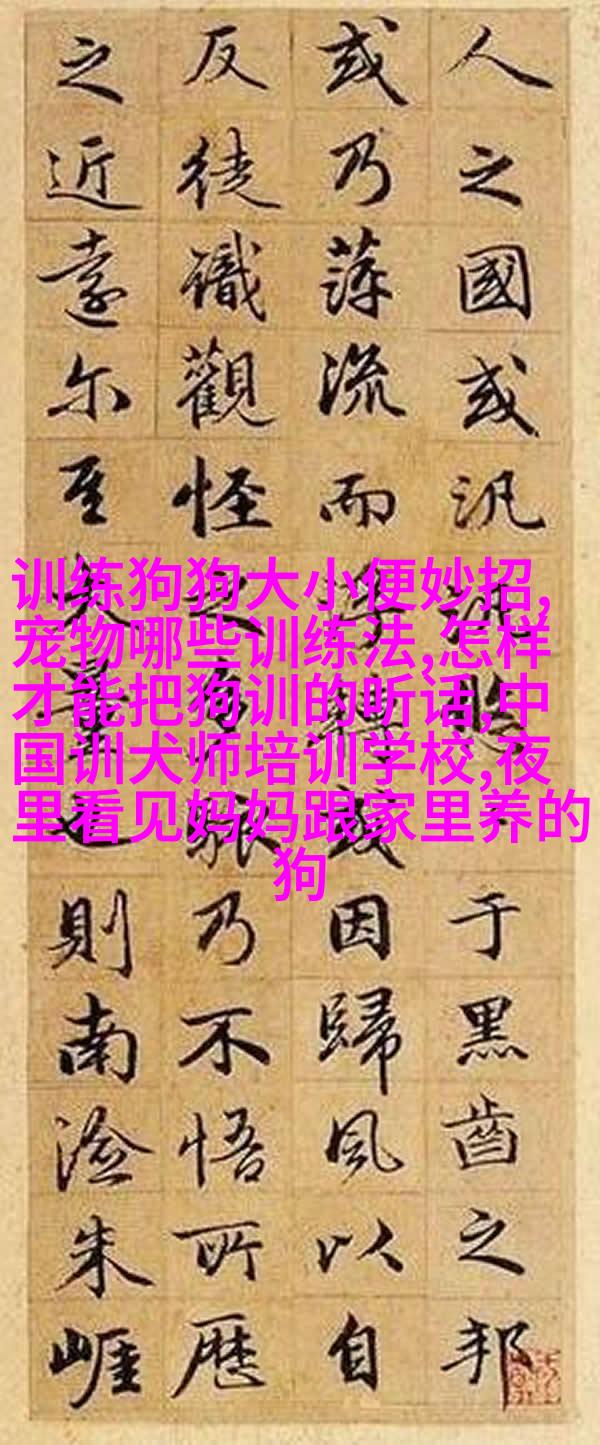 人之國或汎于黑齒之邦
或乃萍流而浮轉或因歸風以自
反徒識觀怪之多駭乃不悟所歷
之近遠尔至大量也則南澰朱崕
训练狗狗大小便妙招,
宠物哪些训练法,怎样
才能把狗训的听话,中
国训犬师培训学校,夜
里看见妈妈跟家里养的
狗